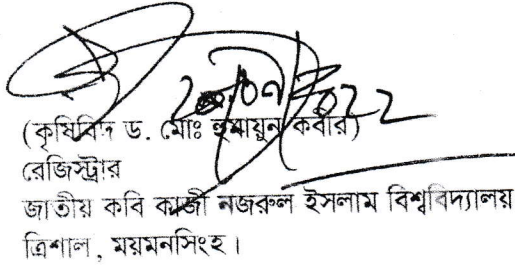 ২০.০৭.২০২২
(কৃষিবিদ ড. মোঃ হুমায়ুন কবীর)
রেজিস্ট্রার
জাতীয় কবি কাজী নজরুল ইসলাম বিশ্ববিদ্যালয়
ত্রিশাল, ময়মনসিংহ।